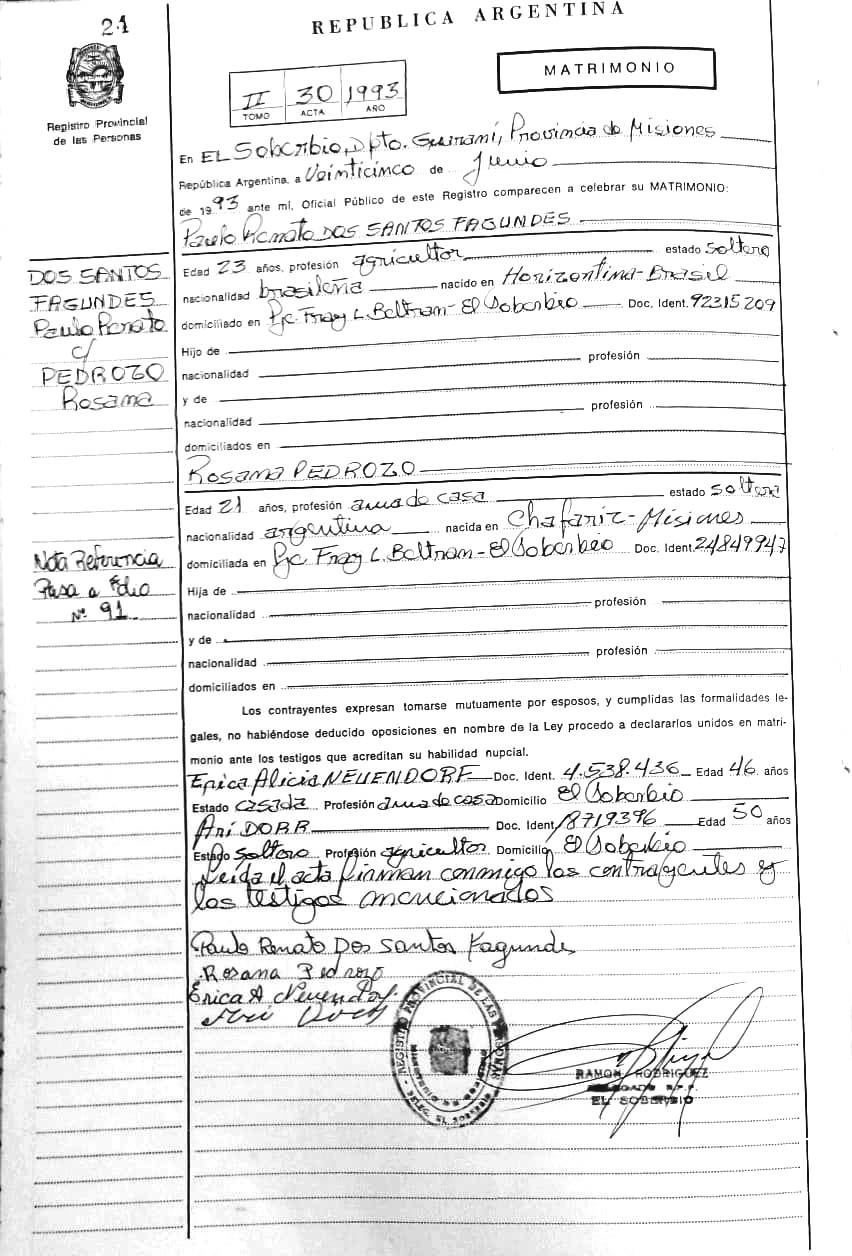 21
REPUBLICA ARGENTINA
MATRIMONIO
Registro Provincial
de las Personas
II 30 1993
TOMO ACTA AÑO
En EL Soberbio, Dpto. Guaraní, Provincia de Misiones
República Argentina, a Veinticinco de Junio
de 1993 ante mí, Oficial Público de este Registro comparecen a celebrar su MATRIMONIO:
Paulo Renato DOS SANTOS FAGUNDES
DOS SANTOS
FAGUNDES
Paulo Renato
c/
PEDROZO
Rosana
Edad 23 años, profesión agricultor estado soltero
nacionalidad brasileña nacido en Horizontina-Brasil
domiciliado en Pje. Fray L. Beltran - El Soberbio Doc. Ident. 92315209
Hijo de profesión
nacionalidad
y de profesión
nacionalidad
domiciliados en
Rosana PEDROZO
Edad 21 años, profesión ama de casa estado soltera
nacionalidad argentina nacida en Chafariz-Misiones
domiciliada en Pje Fray L. Beltran - El Soberbio Doc. Ident. 24849947
Nota Referencia
Pasa a Folio
Nº 91
Hija de profesión
nacionalidad
y de
nacionalidad profesión
domiciliados en
Los contrayentes expresan tomarse mutuamente por esposos, y cumplidas las formalidades le-
gales, no habiéndose deducido oposiciones en nombre de la Ley procedo a declararlos unidos en matri-
monio ante los testigos que acreditan su habilidad nupcial.
Erica Alicia NEUENDORF Doc. Ident. 4.538.436 Edad 46 años
Estado casada Profesión ama de casa Domicilio El Soberbio
Ari DORR Doc. Ident. 18719396 Edad 50 años
Estado soltero Profesión agricultor Domicilio El Soberbio
Leida el acta firman conmigo los contrayentes y
los testigos mencionados
Paulo Renato Dos Santos Fagundes
Rosana Pedrozo
Erica A. Neuendorf
REGISTRO PROVINCIAL DE LAS PERSONAS
DELEG. EL SOBERBIO
RAMON RODRIGUEZ
EL SOBERBIO